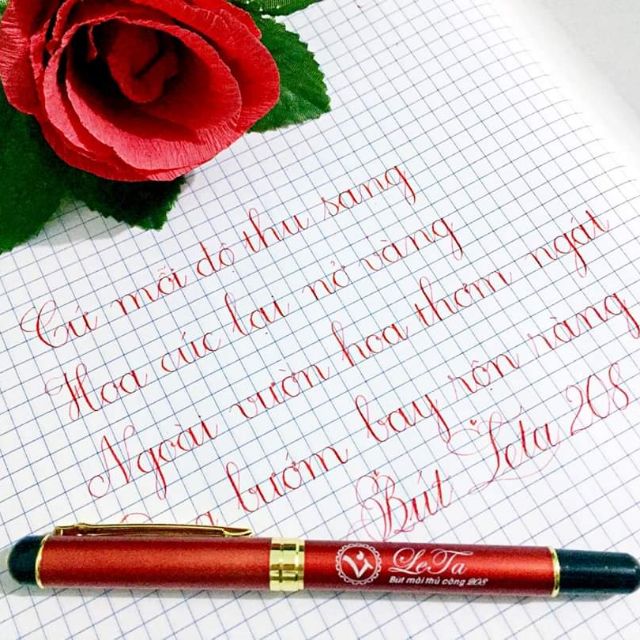 Cứ mỗi độ thu sang
Hoa cúc lại nở vàng
Ngoài vườn hoa thơm ngát
bướm bay rộn ràng
Bút Leta 208
LeTa
Bút mài thủ công 208